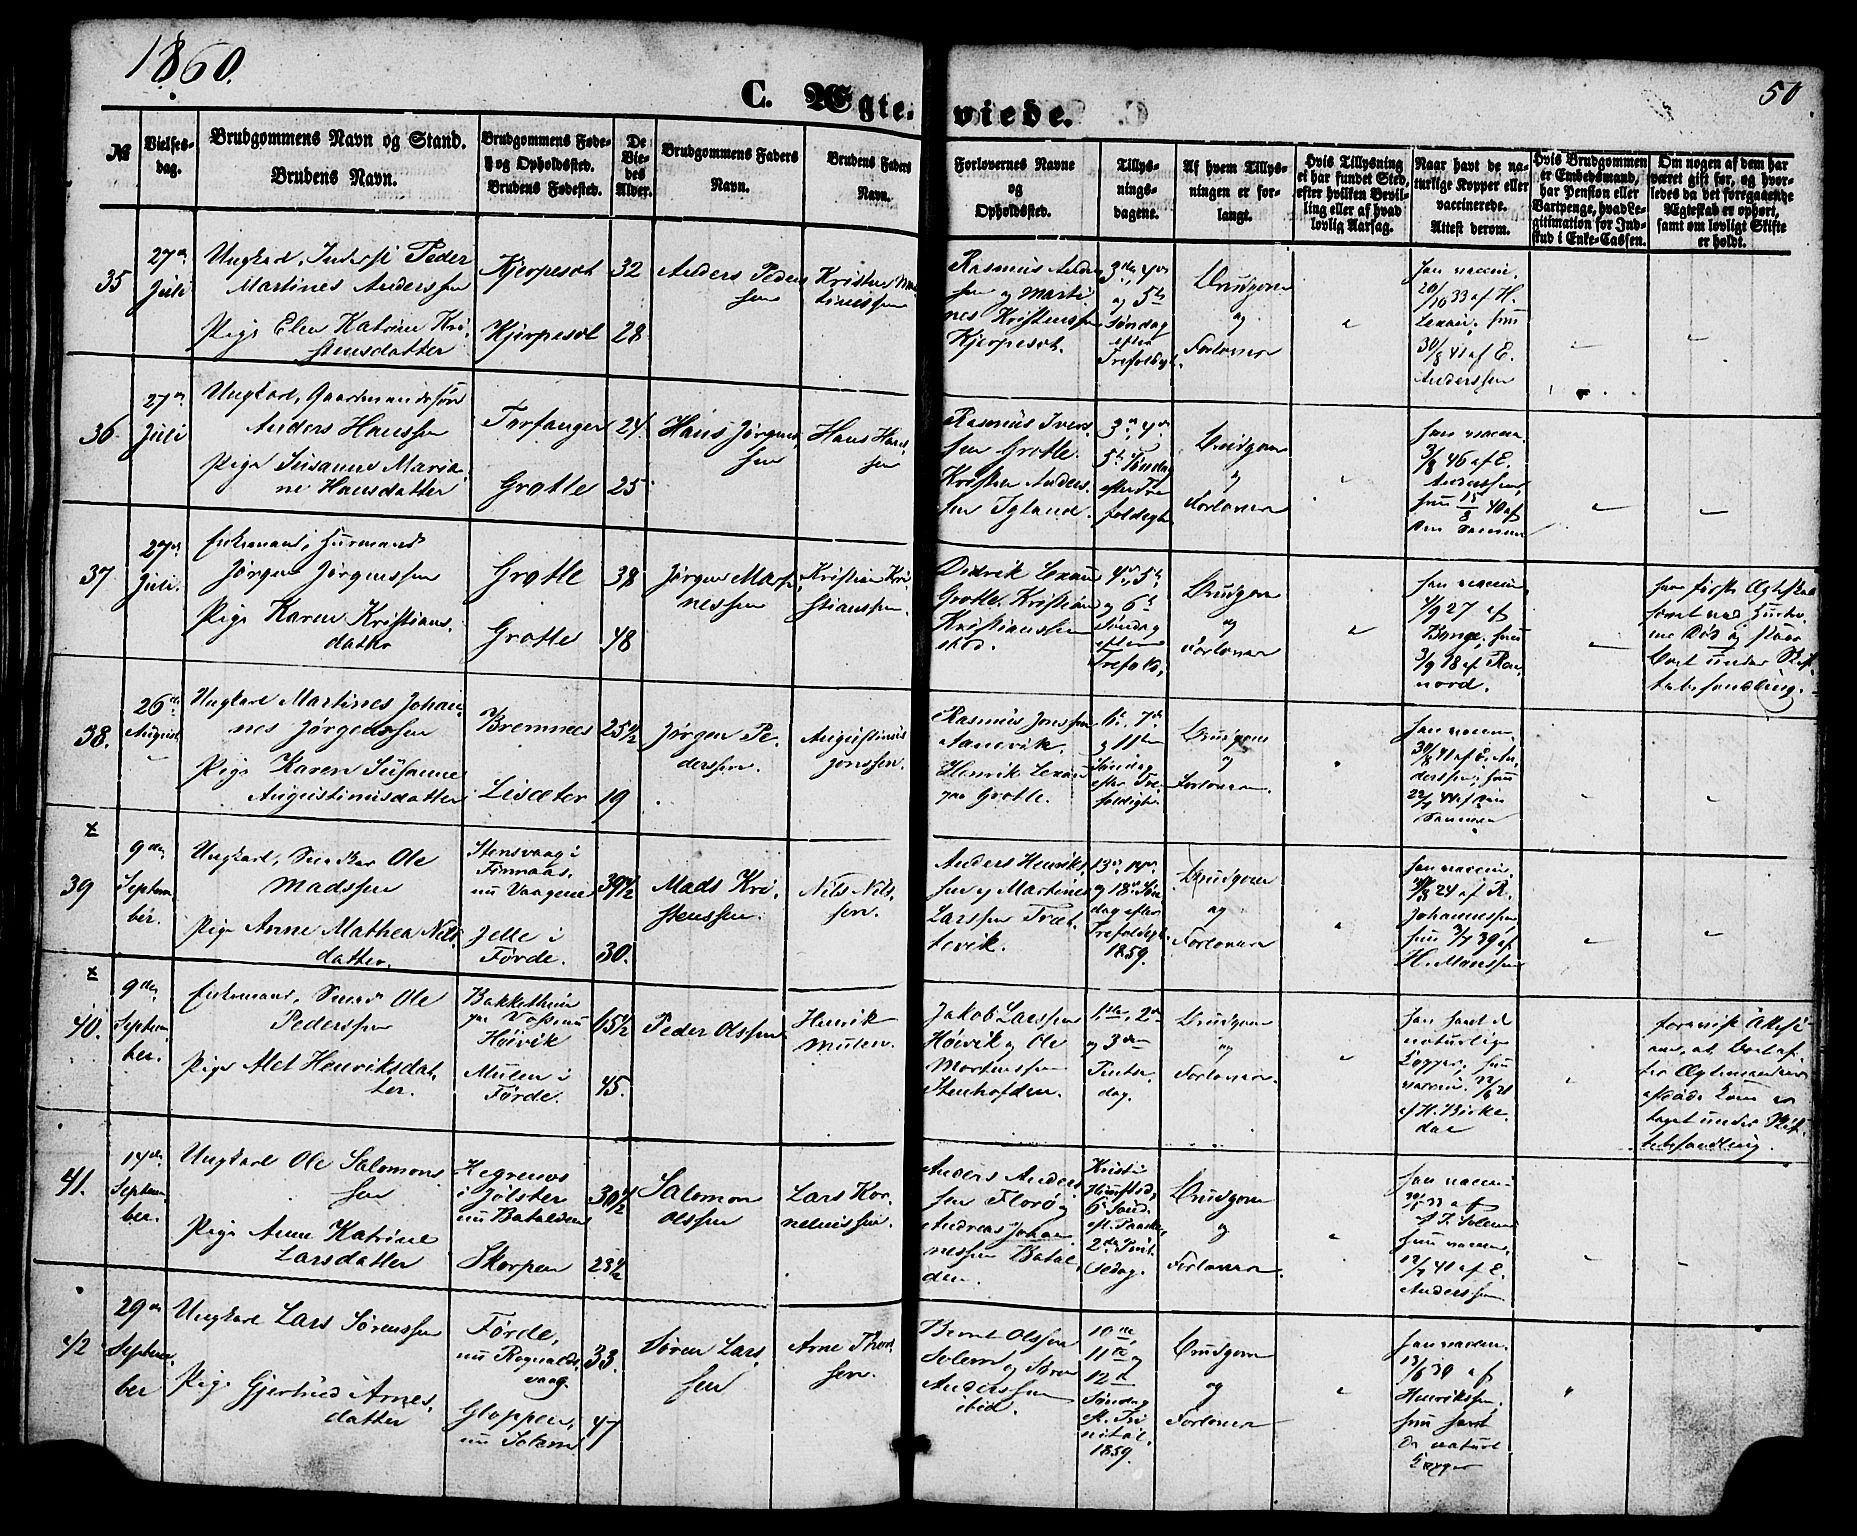 1860.
50
C. Ægteviede.
№
Vielses-
dag.
Brudgommens Navn og Stand.
Brudens Navn.
Brudgommens Føde-
og Opholdssted.
Brudens Fødested.
De
Vie-
des
Alder.
Brudgommens Faders
Navn.
Brudens Faders
Navn.
Forlovernes Navne
og
Opholdssted.
Tillys-
nings-
dagene.
Af hvem Tillys-
ningen er for-
langt.
Hvis Tillysning
ei har fundet Sted,
efter hvilken Bevil-
ling eller af hvad
lovlig Aarsag.
Naar havt de na-
turlige Kopper eller
vaccinerede.
Attest derom.
Hvis Brudgommen
er Embedsmand,
har Pension eller
Vartpenge, hvad Le-
gitimation for Ind-
skud i Enke-Cassen.
Om nogen af dem har
været gift før, og hvor-
ledes da det foregaaende
Ægteskab er ophørt,
samt om lovligt Skifte
er holdt.
35
27de
Juli
Ungkarl, Inderst Peder
Martines Anderssen
Pige Elen Katrine Kri-
stensdatter
Kjerpeset
Kjerpeset
32
28
Anders Peders
sen
Kristen Mar-
tinessen
Rasmus Anders
sen og Marti
nes Kristenssen
Kjerpeset.
3die, 4de
og 5te
Søndag
efter
Trefoldigh.
Brudgom
og
Forlover
han vaccin.
20/10 33 af H.
Lexau, hun
30/8 41 af E.
Anderssen
36
27de
Juli
Ungkarl, Gaardmandssøn
Anders Hanssen
Pige Susanne Maria
ne Hansdatter
Torfanger
Grotle
24
25
Hans Jørgens
sen
Hans Hans
sen
Rasmus Ivers
sen Grotle
Kristen Anders
sen Igland.
3die, 4de
5te Søndag
efter Tre
foldigh.
Brudgom
og
Forlover
han vaccin.
3/8 46 af E.
Anderssen,
hun 15/8 40 af
den samme
37
27de
Juli.
Enkemand, Huusmand
Jørgen Jørgenssen
Pige Karen Kristians
datter
Grotle
Grotle
38
48
Jørgen Marti
nessen
Kristian Kri
stianssen.
Didrik Lexau
Grotle, Kristian
Kristianssen
ibid.
4de, 5te
og 6te
Søndag
efter
Trefold.
Brudgom
og
forlover
han vaccin.
4/9 27 af
hun
3/9 18 af
nord.
38.
26de
August
Ungkarl Martines Johan-
nes Jørgenssen
Pige Karen Susanne
Augustinusdatter
Bremnes
Lisæter
25 1/2
19
Jørgen Pe-
derssen.
Augustinus
Jonssen.
Rasmus Jonssen
Aanevik
Henrik Lexau
paa Grotle.
6te, 7de
og 11te
Søndag
efter Tre
foldigh.
Brudgom
og
Forlover.
han vaccin.
30/8 41 af E. An
derssen, hun
22/7 44 af den
samme
39
9de
Septem
ber.
Ungkarl, Snedker Ole
Madssen
Pige Anne Mathea Nils
datter.
Stensvaag i
Finnaas,
nu Vaagene
Jelle i
Førde.
39 1/2
30.
Mads Kri
stenssen.
Nils Nils-
sen.
Anders Henriks
sen og Martines
Larssen Træt
tevik.
13de, 14de
og 18de Søn
dag efter
Trefoldigh.
1859.
Brudgom
og
Forlover
han vaccin.
24 af R.
Johannessen
hun 3/7 39 af
H. Monssen
40.
9de
Septem
ber.
Enkemand, Smed Ole
Pederssen
Pige Alet Henriksdat-
ter.
Bakkethun
paa Voss nu
Høivik
Mulen i
Førde.
65 1/2
45.
Peder Olssen
Henrik
Mulen.
Jakob Larssen
Høivik og Ole
Mortenssen
Stenhofden.
1ste, 2den
og 3die
Pintse
dag.
Brudgom
og
Forlover.
han havt de
naturlige
Kopper, hun
vaccin.
af H. Birke
dae
41.
14de
Septem
ber.
Ungkarl Ole Salomons
sen
Pige Anne Katrine
Larsdatter
Hegrenes
i Jølster
nu Batalden
Skorpen
30 1/2
23 1/2
Salomon
Olssen
Lars Kor
neliussen
Anders Anders
sen Florø og
Andreas Johan
nessen Batal
den.
Kristi
Himlfted,
6 Sønd.
eft. Paaske,
2den Pint
sedag.
Brudgom
og
Forlover.
han vaccin.
af J. Solem
hun vaccin.
12/7 40 af E.
Anderssen
42
29de
Septem
ber
Ungkarl Lars Sørenssen
Pige Gjertrud Arnes
datter
Førde,
nu Rognalds
vaag.
Gloppen,
nu Solem
33.
47
Søren Lars
sen
Arne Thor
sen.
Bernt Olssen
Solem og Søren
Anderssen
ibid.
10de,
11te og
12te
Søndag
eft. Tri
nitat.
1859.
Brudgom
og
Forlover
han vaccin.
13/6 30 af
Henrikssen,
hun havt
de naturl.
Kopper